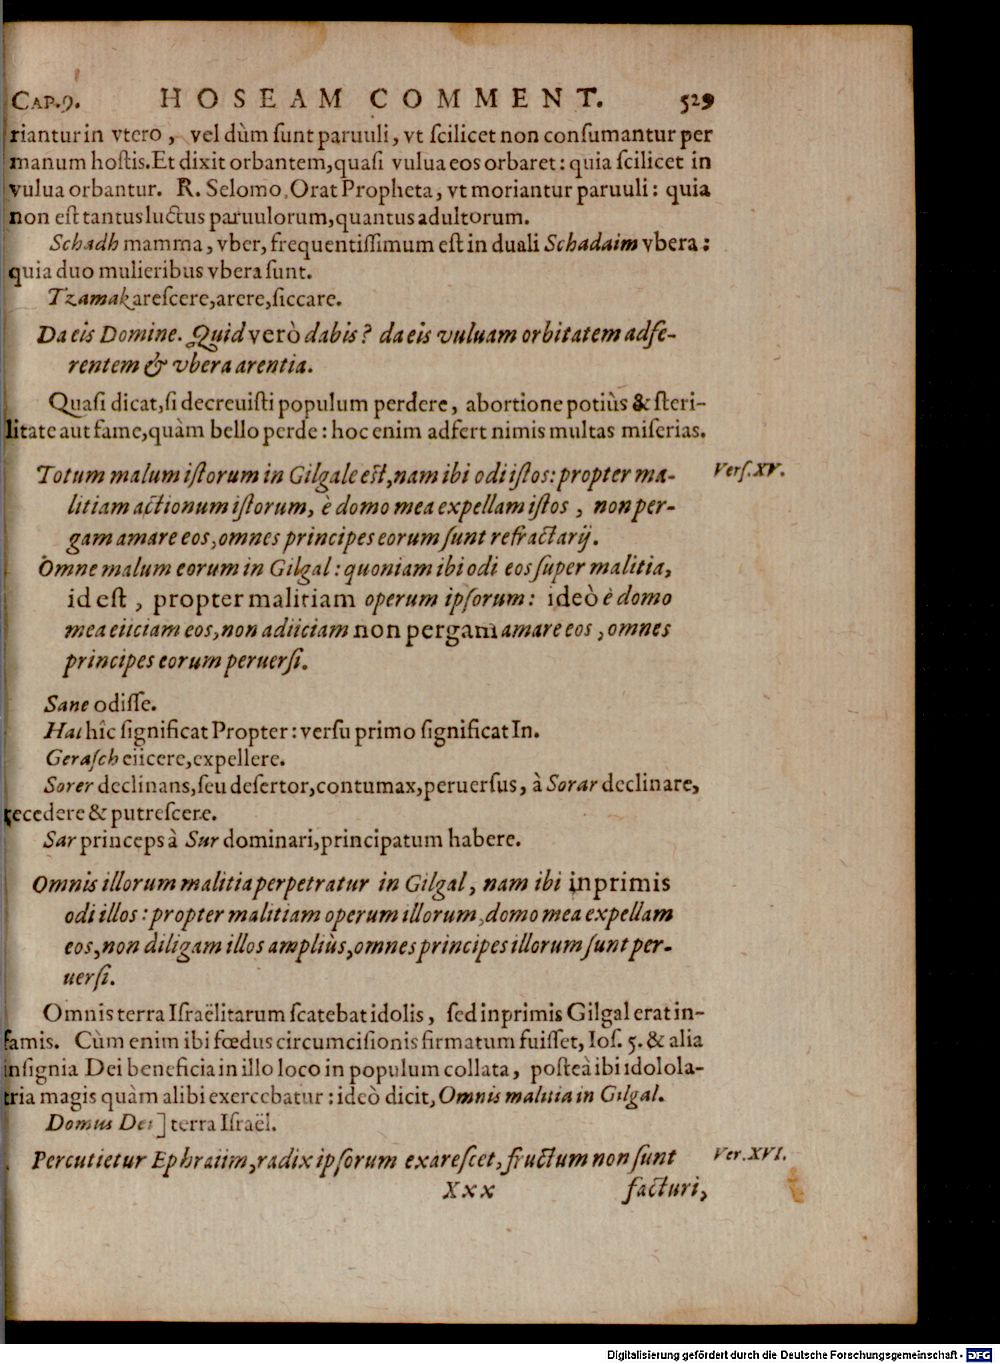 CAP. 9. HOSEAM COMMENT. 529
riantur in vtero, vel dùm sunt paruuli, vt scilicet non consumantur per
manum hostis. Et dixit orbantem, quasi vulua eos orbaret: quia scilicet in
vulua orbantur. R. Selomo, Orat Propheta, vt moriantur paruuli: quia
non est tantus luctus paruulorum, quantus adultorum.
Schadh mamma, vber, frequentissimum est in duali Schadaim vbera:
quia duo mulieribus vbera sunt.
Tzamak arescere, arere, siccare.
Da eis Domine. Quid verò dabis? da eis vuluam orbitatem adfe-
rentem & vbera arentia.
Quasi dicat, si decreuisti populum perdere, abortione potiùs & steri-
litate aut fame, quàm bello perde: hoc enim adfert nimis multas miserias.
Totum malum istorum in Gilgale est, nam ibi odi istos: propter ma- Vers. XV.
litiam actionum istorum, è domo mea expellam istos, non per-
gam amare eos, omnes principes eorum sunt refractarij.
Omne malum eorum in Gilgal: quoniam ibi odi eos super malitia,
id est, propter malitiam operum ipsorum: ideò è domo
mea eiiciam eos, non adiiciam non pergam amare eos, omnes
principes eorum peruersi.
Sane odisse.
Hal hîc significat Propter: versu primo significat In.
Gerasch eiicere, expellere.
Sorer declinans, seu desertor, contumax, peruersus, à Sorar declinare,
recedere & putrescere.
Sar princeps à Sur dominari, principatum habere.
Omnis illorum malitia perpetratur in Gilgal, nam ibi inprimis
odi illos: propter malitiam operum illorum, domo mea expellam
eos, non diligam illos ampliùs, omnes principes illorum sunt per-
uersi.
Omnis terra Israëlitarum scatebat idolis, sed inprimis Gilgal erat in-
famis. Cùm enim ibi fœdus circumcisionis firmatum fuisset, Ios. 5. & alia
insignia Dei beneficia in illo loco in populum collata, posteà ibi idolola-
tria magis quàm alibi exercebatur: ideò dicit, Omnis malitia in Gilgal.
Domus Dei] terra Israël.
Percutietur Ephraiim, radix ipsorum exarescet, fructum non sunt Ver. XVI.
Xxx facturi,
Digitalisierung gefördert durch die Deutsche Forschungsgemeinschaft - DFG